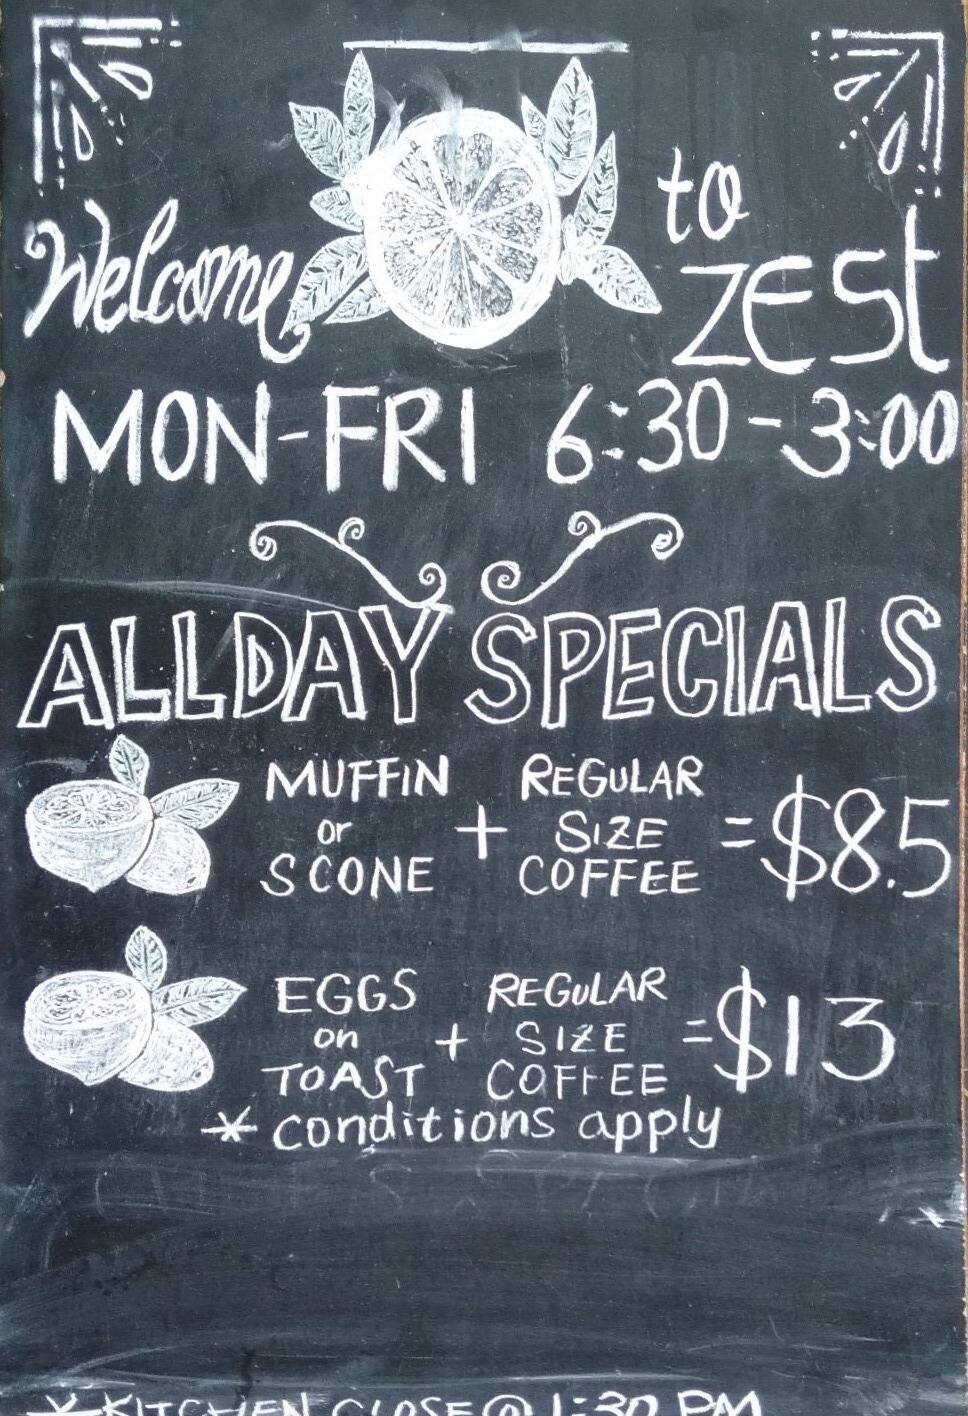 Welcome to
ZESt
MON-FRI 6:30-3:00
ALLDAY SPECIALS
MUFFIN or SCONE + REGULAR SIZE COFFEE =$8.5
EGGS on TOAST + REGULAR SIZE COFFEE =$13
* conditions apply
* KITCHEN CLOSE @ 1:30 PM